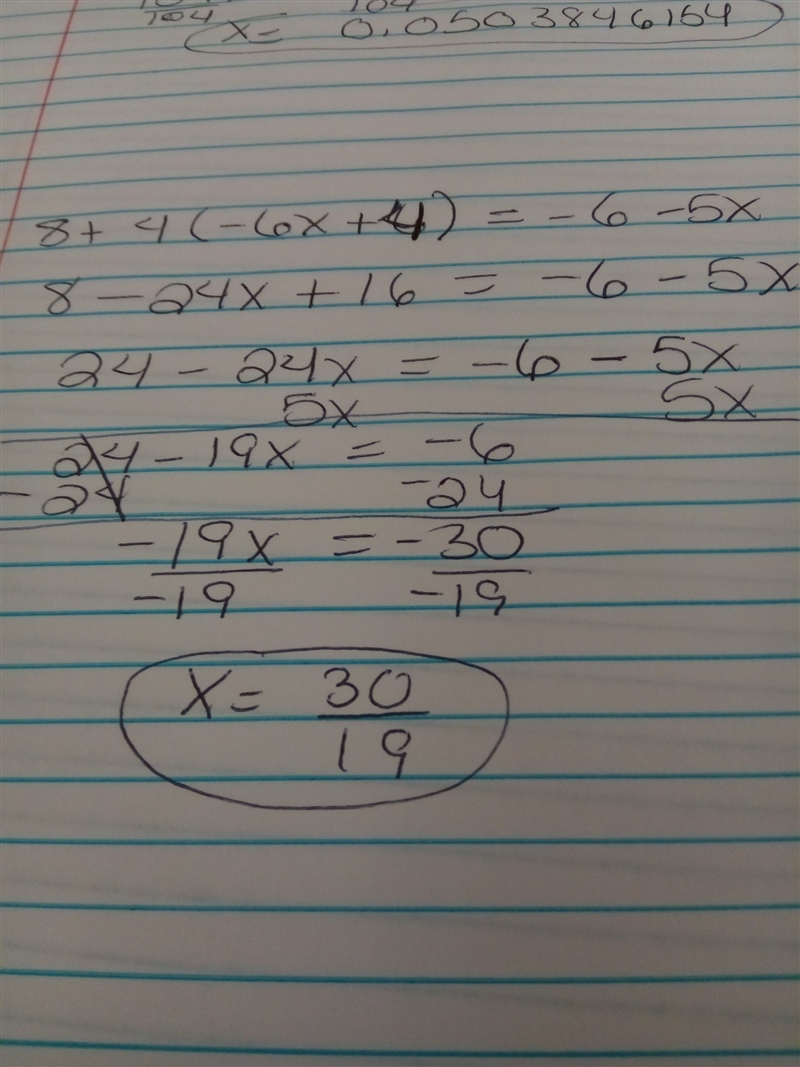 104
x= 0.0503846154
8+ 4(-6x+4) = -6 -5x
8 - 24x + 16 = -6 - 5x
24 - 24x = -6 - 5x
5x 5x
24 - 19x = -6
-24 -24
-19x = -30
-19 -19
x= 30
19